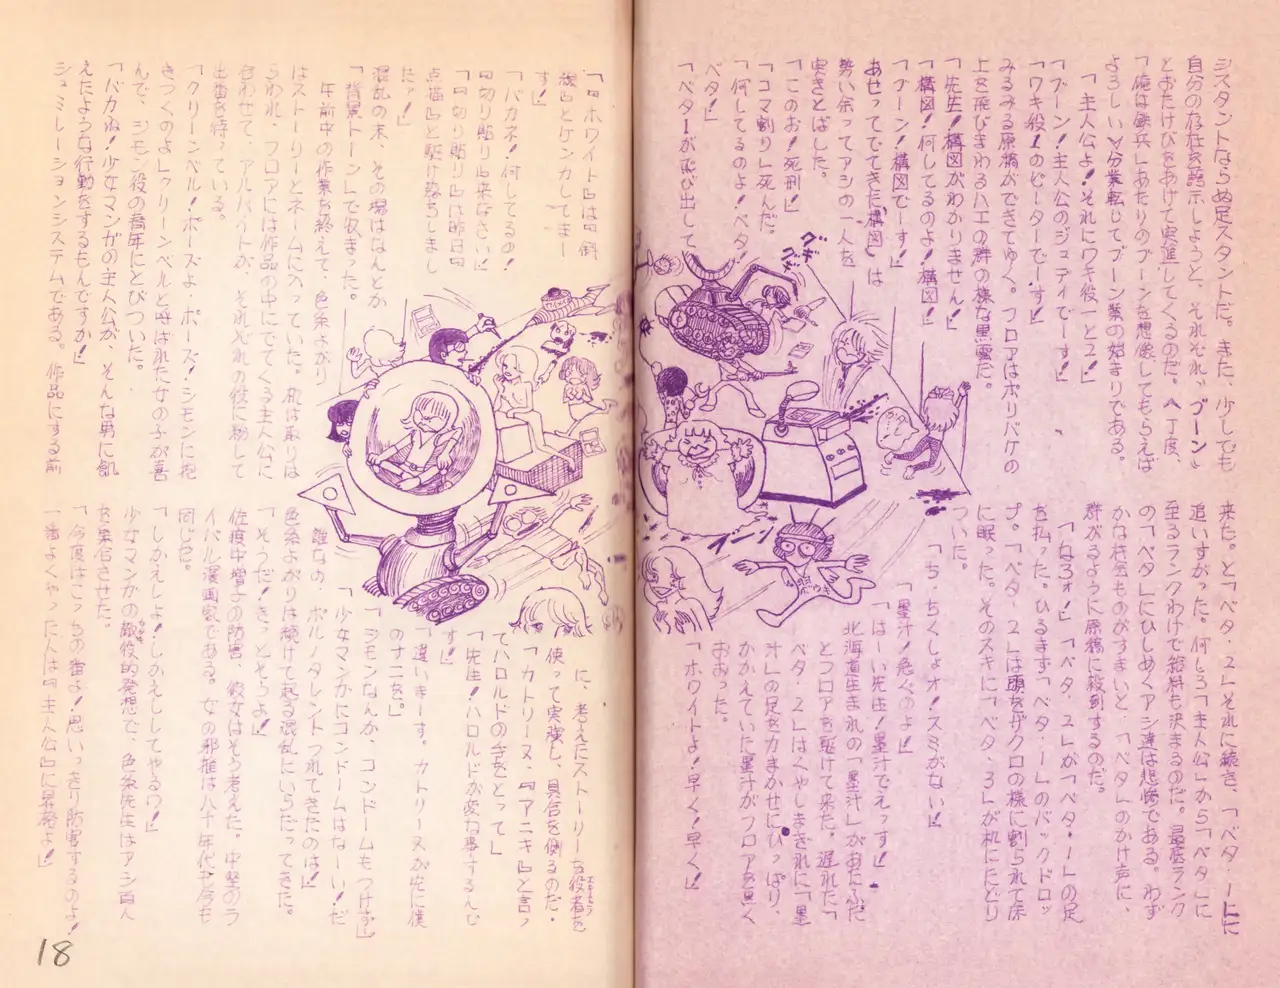 シスタントならぬ足スタントだ。また、少しでも
自分の存在を誇示しようと、それぞれ〝ブーン〟
とおたけびをあげて突進してくるのだ。へ丁度、
「俺は鉄兵」あたりのブーンを想像してもらえば
よろしい∀分業転じてブーン業の始まりである。
「主人公よ!それにワキ役一と2!」
「ブーン!主人公のジュディでーす!」
「ワキ役1のピーターでーす!」
みるみる原稿ができてゆく。フロアはポリバケの
上を飛びまわるハエの群の様な黒雲だ。
「先生!構図がわかりません!」
「構図!何してるのよ!構図!」
「ブーン!構図でーす!」
あせってでてきた「構図」は
勢い余ってアシの一人を
突きとばした。
「このお!死刑!」
「コマ割り」死んだ。
「何してるのよ!ベタ!
ベタ!」
「ベター1が飛び出して
来た。と「ベタ・2」それに続き、「ベタ・1」に
追いすがった。何しろ「主人公」から「ベタ」に
至るランクわけで給料も決まるのだ。最底ランク
の「ベタ」にひしめくアシ達は悲愴である。わず
かな機会ものがすまいと、「ベタ」のかけ声に、
群がるように原稿に殺到するのだ。
「なろォ!」「ベタ・2」が「ベタ・1」の足
を払った。ひるまず「ベタ・1」のバックドロッ
プ。「ベタ・2」は頭をザクロの様に割られて床
に眠った。そのスキに「ベタ・3」が机にたどり
ついた。
「ち、ちくしょオ!スミがない!」
「墨汁!急ぐのよ!」
「はーい先生!墨汁でえっす!」
北海道生まれの「墨汁」があたふた
とフロアを駆けて来た。遅れた「
ベタ・2」はくやしまぎれに「墨
汁」の足を力まかせにひっぱり、
かかえていた墨汁がフロアを黒く
おおった。
「ホワイトよ!早く!早く!」
グギ
グギ
イーン
「『ホワイト』は『倒
』とケンカしてまー
す!」
「バカネ!何してるの!
『切り貼り』来なさい!」
「『切り貼り』は昨日『
点描』と駆け落ちしまし
たァ!」
混乱の末、その場はなんとか
「背景トーン」で収まった。
午前中の作業を終えて、色糸よがり
はストーリーとネームに入っていた。机は取りは
らわれ、フロアには作品の中にでてくる主人公に
合わせて、アルバイトが、それぞれの役に粉して
出番を待っている。
「クリーンベル!ポーズよ、ポーズ!シモンに抱
きつくのよ」クリーンベルと呼ばれた女の子が喜
んで、シモン役の青年にとびついた。
「バカね!少女マンガの主人公が、そんな男に飢
えたような行動をするもんですか!」
シュミレーションシステムである。作品にする前
に、考えたストーリーを役者を
使って実演し、具合を測るのだ・
「カトリーヌ・『アニキ』と言っ
てハロルドの手をとって」
「先生!ハロルドが変な事するんで
す!」
「違いまーす。カトリーヌが先に僕
のナニを。」
「シモンなんか、コンドームもつけず」
「少女マンガにコンドームはなーい!だ
誰なの、ポルノタレントつれてきたのは!」
色糸よがりは続けて起る混乱にいらだってきた。
「そうだ!きっとそうよ!」
佐渡中増子の防害、彼女はそう考えた。中堅のラ
イバル漫画家である。女の邪推は八十年代も今も
同じだ。
「しかえしよ!しかえししてやるワ!」
少女マンガの敵役的発想で、色糸先生はアシ百人
を集合させた。
「今度はこっちの番よ!思いっきり防害するのよ!
一番よくやった人は『主人公』に昇格よ!」
18